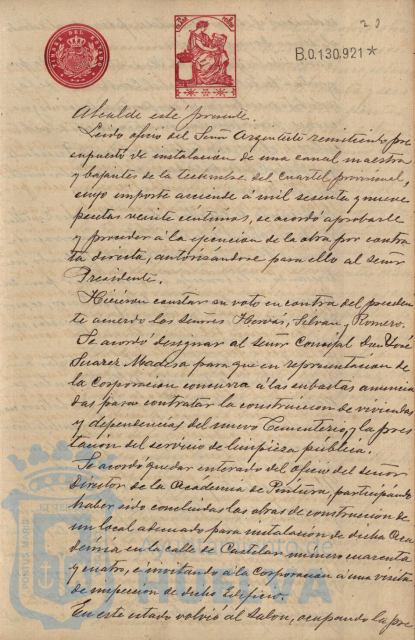 20
TIMBRE DEL ESTADO
B.0.130.921*
Alcalde este presente.
Leido oficio del Señor Arquitecto remitiendo pre
supuesto de instalacion de una canal maestra
y bajantes de la techumbre del Cuartel provisional,
cuyo importe asciende á mil sesenta y nueve
pesetas veinte centimos, se acordó aprobarle
y proceder á la ejecucion de la obra por contra
ta directa, autorizandose para ello al señor
Presidente.
Hicieron constar su voto en contra del preceden
te acuerdo los señores Hervás, Selvan y Romero.
Se acordó designar al señor Concejal Don José
Suarez Madera para que en representacion de
la Corporacion concurra á las subastas anuncia
das para contratar la construccion de viviendas
y dependencias del nuevo Cementerio, y la pres
tacion del servicio de limpieza pública.
Se acordó quedar enterado del oficio del señor
Director de la Academia de Pintura, participando
haber sido concluidas las obras de construccion de
un local adecuado para instalacion de dicha Aca
demia en la calle de Castelar número cuarenta
y cuatro, é invitando á la Corporacion á una visita
de inspeccion de dicho Edificio.
En este estado volvió al Salon, ocupando la pre
PORTUS MARIS
HUELVA